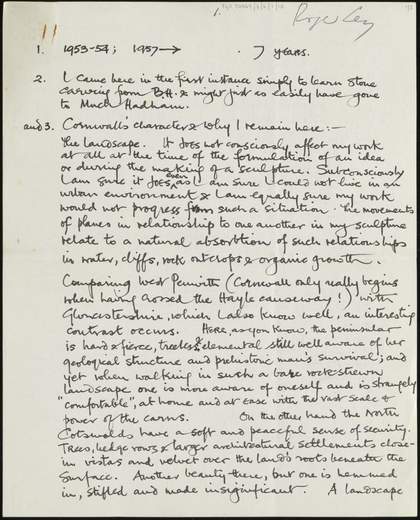 1.
Roger Leigh
11
1. 1953-54; 1957→ . 7 years.
2. I came here in the first instance simply to learn stone
carving from B.H. & might just as easily have gone
to Much Hadham.
and 3. Cornwall's character & why I remain here:—
The landscape. It does not consciously affect my work
at all at the time of the formulation of an idea
or during the making of a sculpture. Subconsciously
I am sure it does, even as I am sure I could not live in an
urban environment & I am equally sure my work
would not progress from such a situation. The movements
of planes in relationship to one another in my sculpture
relate to a natural absorbtion of such relationships
in water, cliffs, rock outcrops & organic growth.
Comparing West Penwith (Cornwall only really begins
when having crossed the Hayle causeway!) with
Gloucestershire, which I also know well, an interesting
contrast occurs. Here, as you know, the peninsular
is hard & fierce, treeless & elemental still well aware of her
geological structure and prehistoric man's survival; and
yet when walking in such a bare rock-strewn
landscape one is more aware of oneself and is strangely
"comfortable", at home and at ease with the vast scale &
power of the carns. On the other hand the North
Cotswolds have a soft and peaceful sense of security.
Trees, hedgerows & larger architectural settlements close-
in vistas and velvet over the land's roots beneath the
surface. Another beauty there, but one is hemmed
in, stifled and made insignificant. A landscape